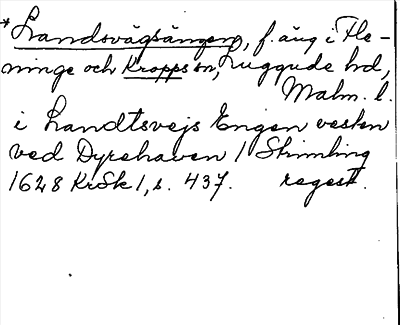 *Landsvägsängen, f. äng i Fle-
ninge och Kropps sn, Luggude hd,
Malm. l.
i Landtsvejs Engen vesten
ved Dyrehaven / Skimling
1628 KrSk 1, s. 437. regest.